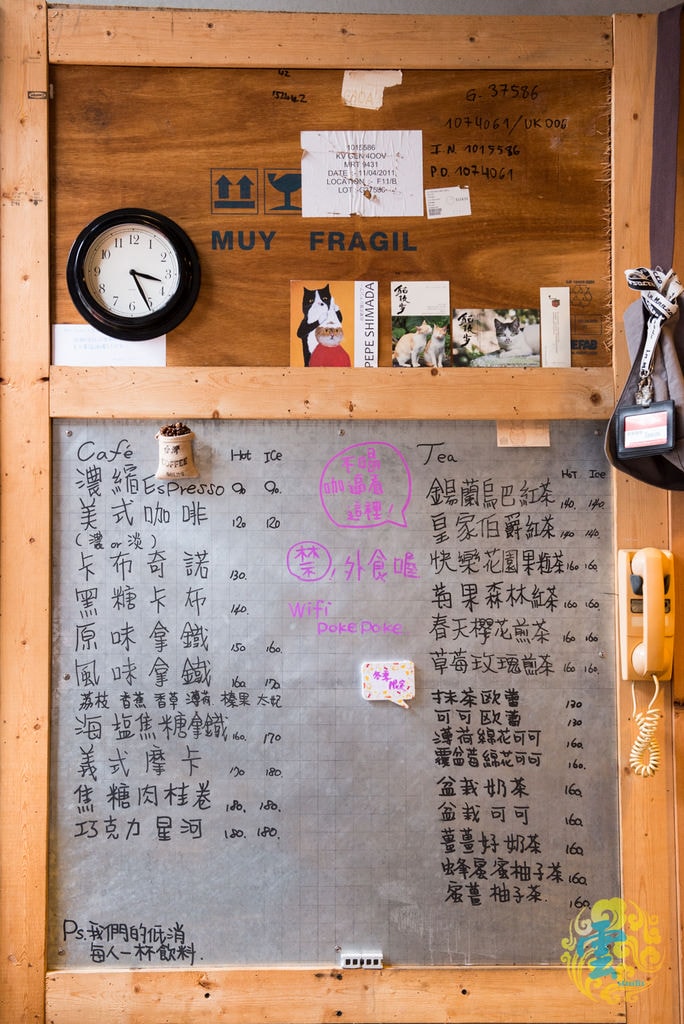 G. 37586
1074061/UK006
I.N. 1015586
P.O. 1074061
1015586
KV GEN 4OOV
MRT 9431
DATE :- 11/04/2011
LOCATION :- F11/B
MUY FRAGIL
12
11
1
10
2
9
3
8
4
7
5
6
PEPE SHIMADA
Café
Hot ICe
濃縮Espresso 90 90.
美式咖啡 120 120
(濃 or 淡)
卡布奇諾 130.
黑糖卡布 140.
原味拿鐵 150 160.
風味拿鐵 160. 170
荔枝 香蕉 香草 薄荷 榛果 太妃
海塩焦糖拿鐵 160. 170
義式摩卡 170 180.
焦糖肉桂卷 180. 180.
巧克力星河 180. 180.
Ps.我們的低消
每人一杯飲料.
COFFEE
不喝
咖逼看
這裡!
禁!外食喔
Wifi
pokepoke
冬季
限定!
Tea
HOT Ice
錫蘭烏巴紅茶 140. 140.
皇家伯爵紅茶 140. 140.
快樂花園果粒茶 160 160.
莓果森林紅茶 160 160
春天櫻花煎茶 160 160
草莓玫瑰煎茶 160 160
抹茶歐蕾 130
可可歐蕾 130
薄荷綿花可可 160.
覆盆莓綿花可可 160.
盆栽奶茶 160
盆栽可可 160.
薑薑好奶茶 160.
蜂蜜蜜柚子茶 160.
蜜薑柚子茶. 160.
雲